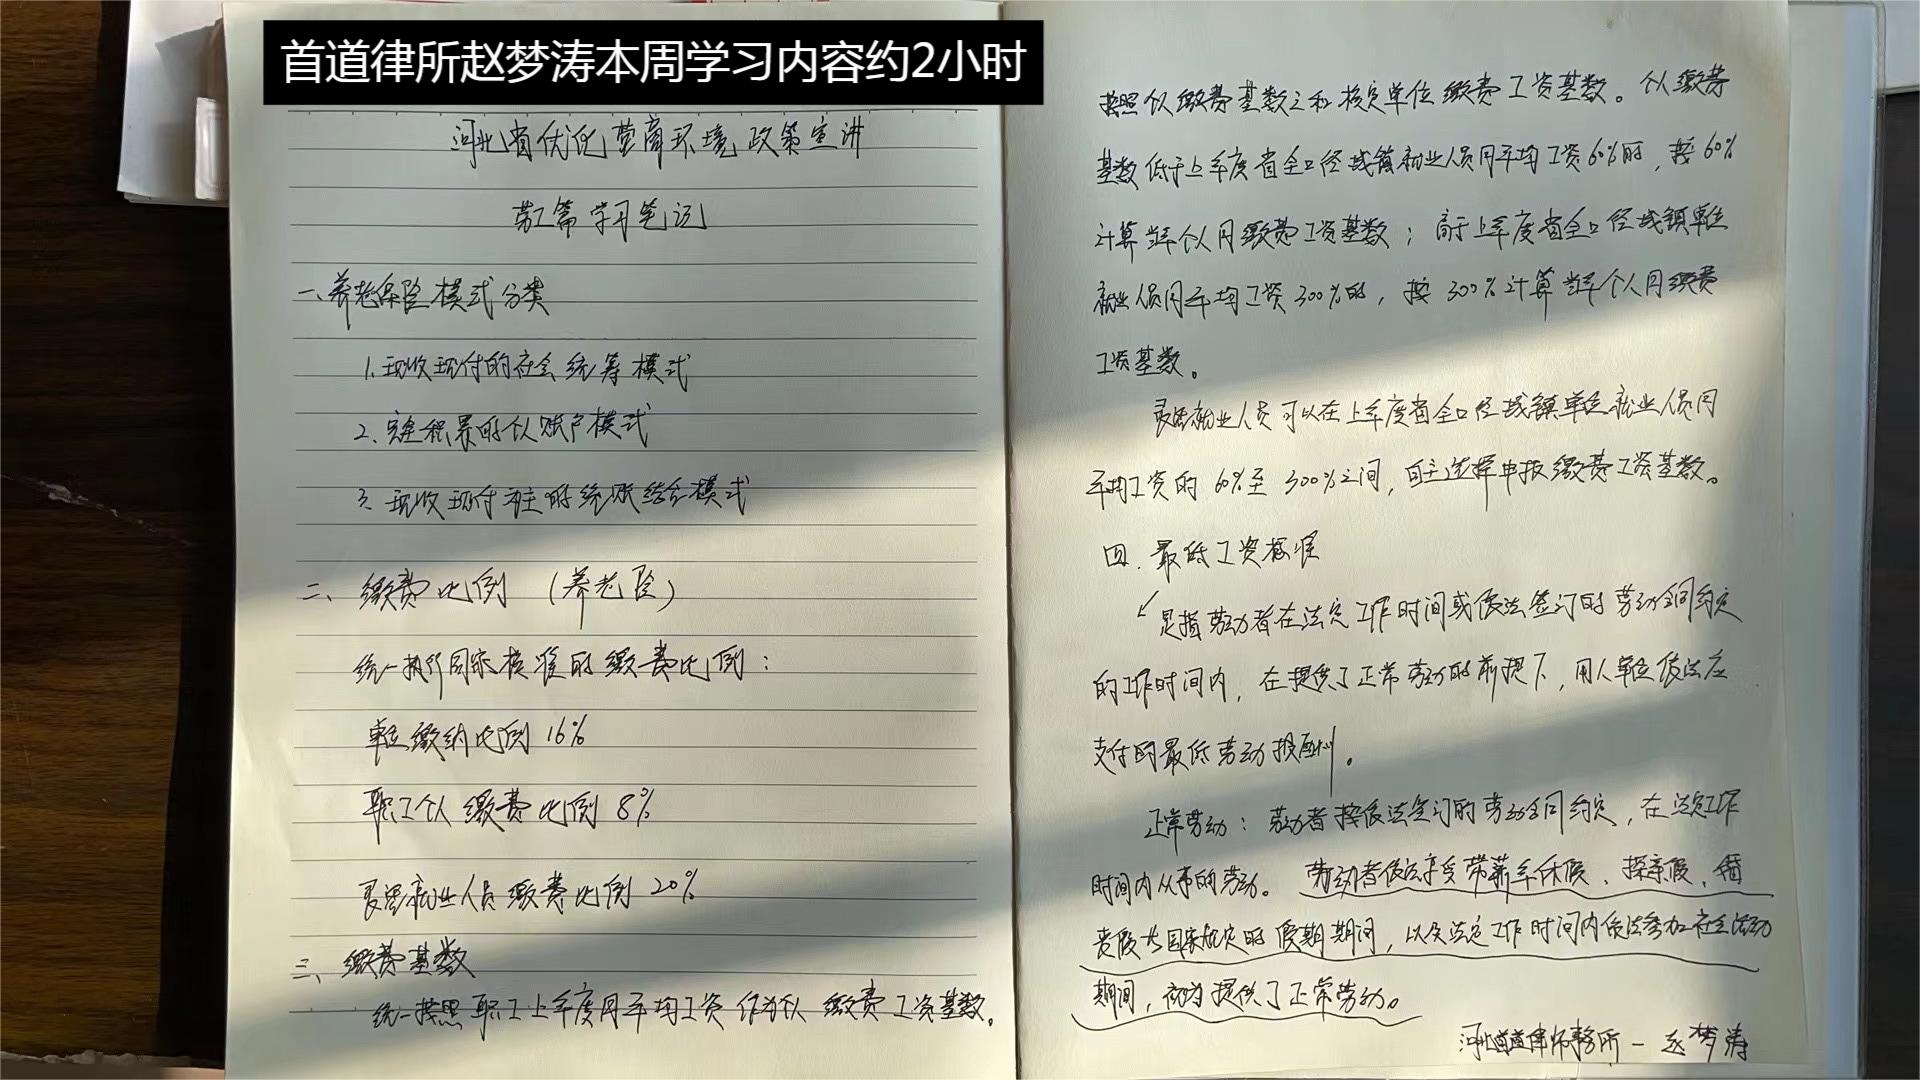 首道律所赵梦涛本周学习内容约2小时
河北省优化营商环境政策宣讲
劳工篇学习笔记
一、养老保险模式分类
1.现收现付的社会统筹模式
2.完全积累的个人账户模式
3.现收现付为主的统账结合模式
二、缴费比例(养老险)
统一执行国家核准的缴费比例:
单位缴纳比例16%
职工个人缴费比例8%
灵活就业人员缴费比例20%
三、缴费基数
统一按照职工上年度月平均工资作为个人缴费工资基数。
按照个人缴费基数之和核定单位缴费工资基数。个人缴费
基数低于上年度省全口径城镇就业人员月平均工资60%的,按60%
计算当年个人月缴费工资基数;高于上年度省全口径城镇单位
就业人员月平均工资300%的,按300%计算当年个人月缴费
工资基数。
灵活就业人员可以在上年度省全口径城镇单位就业人员月
平均工资的60%至300%之间,自主选择申报缴费工资基数。
四.最低工资标准
是指劳动者在法定工作时间或依法签订的劳动合同约定
的工作时间内,在提供了正常劳动的前提下,用人单位依法应
支付的最低劳动报酬。
正常劳动:劳动者按依法签订的劳动合同约定,在法定工作
时间内从事的劳动。劳动者依法享受带薪年休假、探亲假、婚
丧假等国家规定的假期期间,以及法定工作时间内依法参加社会活动
期间,应为提供了正常劳动。
河北首道律师事务所-赵梦涛